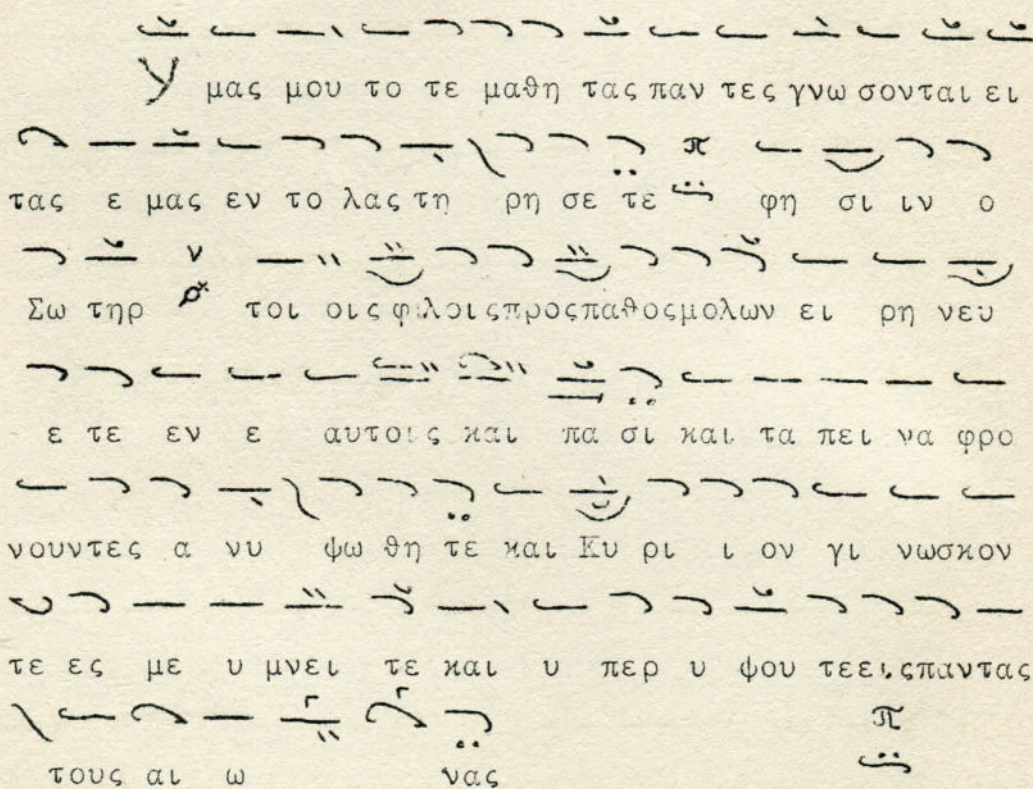 Υ μας μου το τε μαθη τας παν τες γνω σονται ει
τας ε μας εν το λας τη ρη σε τε π φη σι ιν ο
Σω τηρ ν τοι οις φιλοις προς παθος μολων ει ρη νευ
ε τε εν ε αυτοις και πα σι και τα πει να φρο
νουντες α νυ ψω θη τε και Κυ ρι ι ον γι νωσκον
τε ες με υ μνει τε και υ περ υ ψου τε εις παντας
τους αι ω νας π